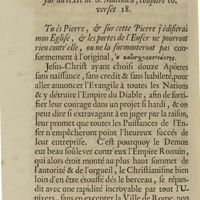 sur un Texte de S. Matthieu, chapitre 16.
verset 18.
Tu és Pierre, & sur cette Pierre j'édifierai
mon Eglise, & les portes de l'Enfer ne pourront
rien contr'elle, ou ne la surmonteront pas con-
formement à l'original,
Jesus-Christ ayant choisi douze Apôtres
sans naissance, sans credit & sans habileté, pour
aller annoncer l'Evangile à toutes les Nations
& y détruire l'Empire du Diable, afin de forti-
fier leur courage dans un projet si hardi, & on
peut dire si extravagant à en juger par la raison,
leur promet que toutes les Puissances de l'En-
fer n'empêcheront point l'heureux succés de
leur entreprise. C'est pourquoy le Demon
eut beau soûlever contr'eux l'Empire Romain,
qui alors étoit monté au plus haut sommet de
l'autorité & de l'orgueil, le Christianisme bien
loin d'en être étouffé dés le berceau, se répan-
dit avec une rapidité incroyable par tout l'U-
nivers, sans en excepter la Ville de Rome, pon